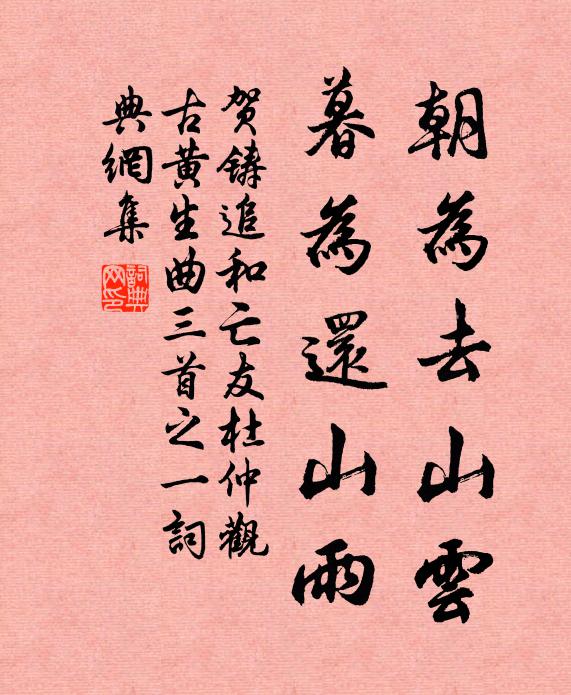 朝為去山雲
暮為還山雨
贺铸追和亡友杜仲觀
古黄生曲三首之一詞
典網集
詞典网印